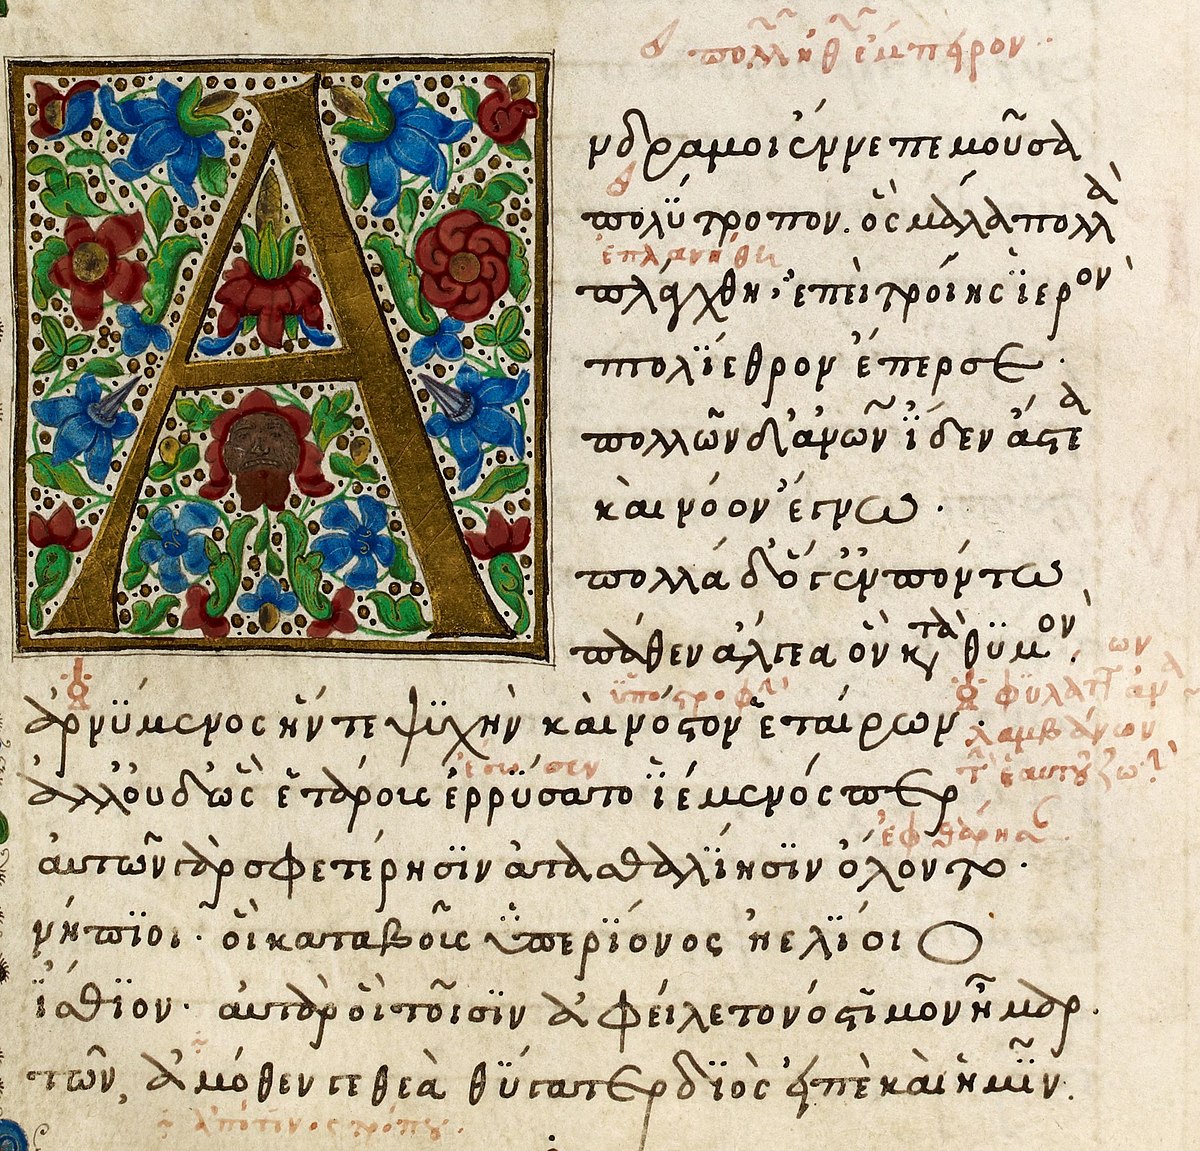 πολλὴν ἔμπειρον
Ἄνδρα μοι ἔννεπε μοῦσα
πολύτροπον. ὃς μάλα πολλὰ
ἐπλανήθη
πλάγχθη, ἐπεὶ τροίης ϊερὸν
πτολίεθρον ἔπερσε.
πολλῶν δ' ἀνθρώπων ἴδεν ἄστεα
καὶ νόον ἔγνω.
πολλὰ δ' ὅγ' ἐν πόντω
πάθεν ἄλγεα ὃν κατὰ θϋμὸν.
ὑποστροφὴν
ἀρνϋμενος ἥν τε ψϋχὴν καὶ νόστον ἑταίρων.
φϋλάττων
λαμβάνων
ἔσωσεν
ἀλλ' οὐδ' ὣς ἑτάρους ἐρρύσατο ϊέμενός περ
ἐφθάρησαν
αὐτῶν γὰρ σφετέρησϊν ἀτασθαλίησϊν ὄλοντο.
νήπϊοι. οἳ κατὰ βοῦς ὑπερϊονος ἠελϊοιο
ἤσθϊον. αὐτὰρ ὁ τοῖσϊν ἀφείλετο νόστιμον ἦμαρ.
τῶν, ἀμόθεν γε θεὰ θϋγατερ δϊὸς εἰπὲ καὶ ἡμῖν.
ἀπό τινος τρόπου.